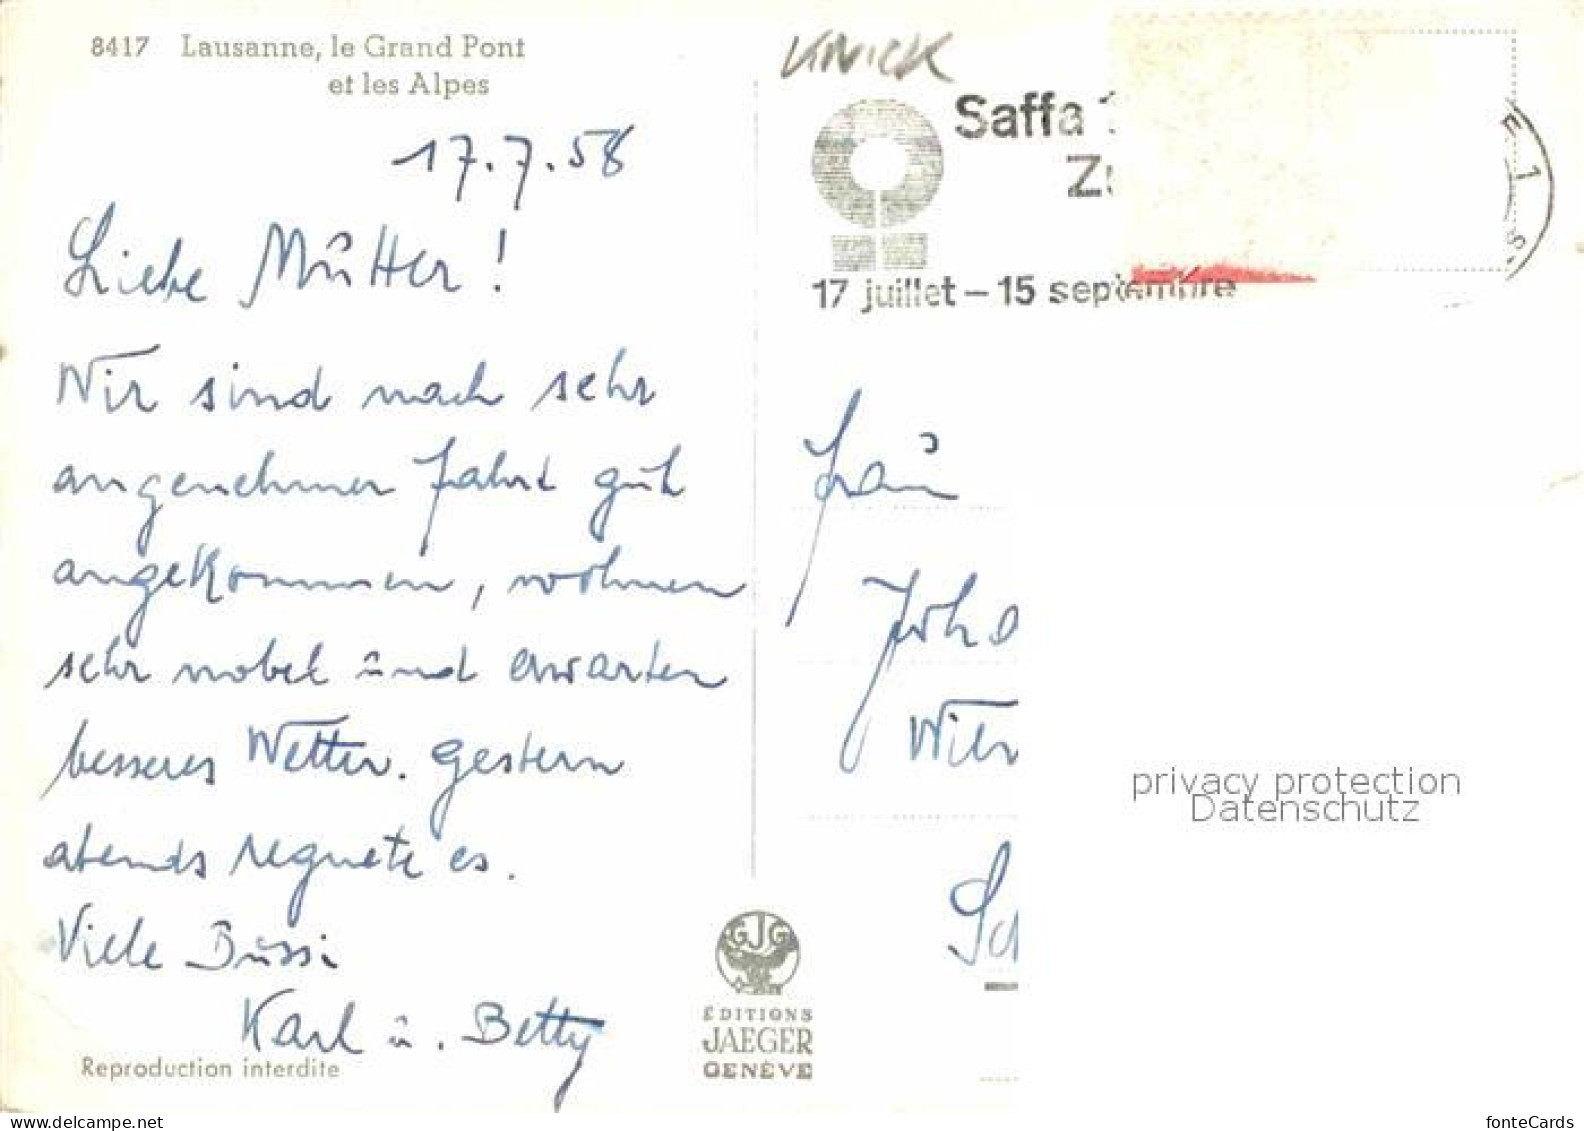 8417 Lausanne, le Grand Pont
et les Alpes
17.7.58
Liebe Mutter!
Wir sind nach sehr
angenehmer Fahrt gut
angekommen, wohnen
sehr nobel und erwarten
besseres Wetter. Gestern
abends regnete es.
Viele Bussi
Karl u. Betty
Reproduction interdite
GJG
ÉDITIONS
JAEGER
GENÈVE
KNICK
Saffa
17 juillet – 15 septembre
Frau
Wien
privacy protection
Datenschutz
www.delcampe.net
fonteCards